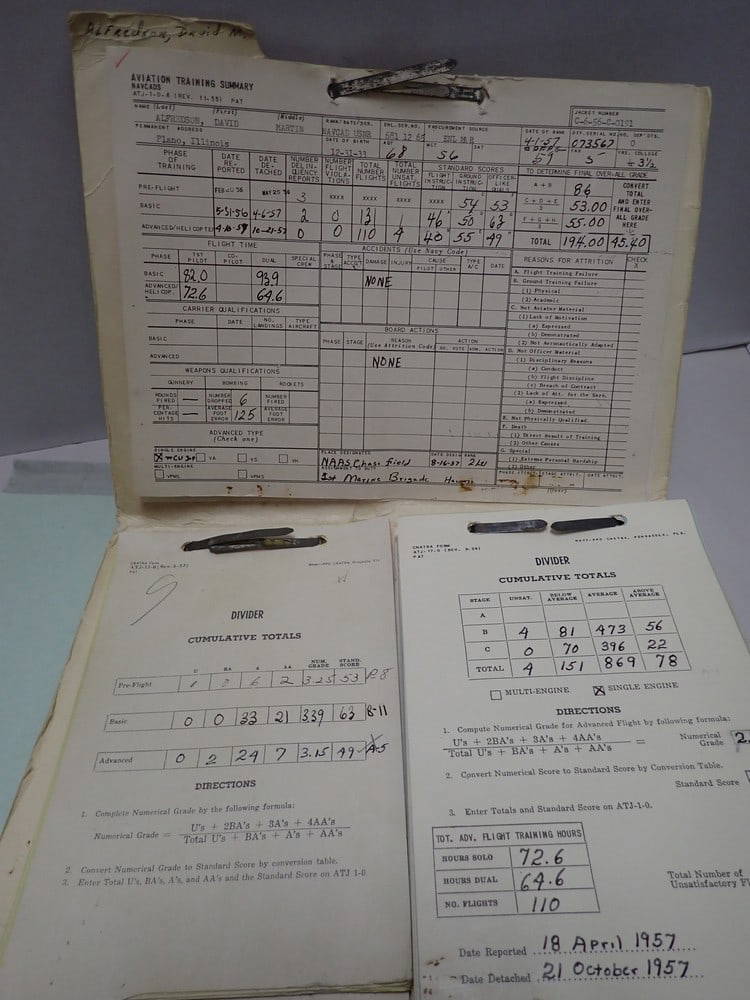 Alfredson, David M.
AVIATION TRAINING SUMMARY
NAVCADS
ATJ-1-0-6 (REV. 11-55) PAT
NAME (Last) (First) (Middle)
ALFREDSON, DAVID MARTIN
RANK/RATE/SER.
NAVCAD USNR
PROCUREMENT SOURCE
JACKET NUMBER
C-6-56-C-0191
PERMANENT ADDRESS
Plano, Illinois
DATE OF BIRTH
12-31-33
HGT
68
WGT
56
DATE OF RANK
4-1-57
073567
0
59
5
3½
PHASE OF TRAINING
DATE REPORTED
DATE DETACHED
NUMBER DELINQUENCY REPORTS
NUMBER FLIGHT VIOLATIONS
TOTAL NUMBER FLIGHTS
TOTAL NUMBER UNSAT. FLIGHTS
STANDARD SCORES
FLIGHT INSTRUCTION
GROUND INSTRUCTION
OFFICER-LIKE
TO DETERMINE FINAL OVER-ALL GRADE
PRE-FLIGHT FEB 20 56 MAY 25 56 3 XXXX XXXX XXXX XXXX 54 53
BASIC 5-31-56 4-6-57 2 0 131 1 46 50 63
ADVANCED/HELICOPTER 4-18-57 10-21-57 0 0 110 4 40 55 49
A + B 86
C + D + E 53.00
F + G + H 55.00
TOTAL 194.00 45.40
CONVERT TOTAL AND ENTER FINAL OVER-ALL GRADE HERE
FLIGHT TIME
PHASE 1ST PILOT CO-PILOT DUAL SPECIAL CREW
BASIC 82.0 93.9
ADVANCED/HELICOP. 72.6 64.6
CARRIER QUALIFICATIONS
PHASE DATE NO. LANDINGS TYPE AIRCRAFT
BASIC
ADVANCED
WEAPONS QUALIFICATIONS
GUNNERY BOMBING ROCKETS
ROUNDS FIRED — NUMBER DROPPED 6 NUMBER FIRED
PERCENTAGE HITS — AVERAGE FOOT ERROR 125 AVERAGE FOOT ERROR
ADVANCED TYPE
(Check one)
SINGLE ENGINE
VA VS VH
MULTI-ENGINE
ACCIDENTS (Use Navy Code)
PHASE & STAGE TYPE ACCDT DAMAGE INJURY CAUSE PILOT OTHER TYPE A/C DATE
NONE
BOARD ACTIONS
PHASE STAGE REASON (Use Attrition Code) ACTION
NONE
PLACE DESIGNATED
NAAS, Chase Field 8-16-57 2 Lt
1st Marine Brigade Hawaii
REASONS FOR ATTRITION CHECK X
A. Flight Training Failure
B. Ground Training Failure
(1) Physical
(2) Academic
C. Not Aviator Material
(1) Lack of Motivation
(a) Expressed
(b) Demonstrated
(2) Not Aeronautically Adapted
D. Not Officer Material
(1) Disciplinary Reasons
(a) Conduct
(b) Flight Discipline
(c) Breach of Contract
(2) Lack of Att. for the Serv.
(a) Expressed
(b) Demonstrated
E. Not Physically Qualified.
F. Death
(1) Direct Result of Training
(2) Other Causes
G. Special
(1) Extreme Personal Hardship
(2) Other
(Over)
DIVIDER
CUMULATIVE TOTALS
U BA A AA NUM. GRADE STAND. SCORE
Pre-Flight 6 2 3.25 53 P-8
Basic 0 0 33 21 3.39 63 B-11
Advanced 0 2 24 7 3.15 49 A-5
DIRECTIONS
1. Complete Numerical Grade by the following formula:
Numerical Grade = U's + 2BA's + 3A's + 4AA's
Total U's + BA's + A's + AA's
2. Convert Numerical Grade to Standard Score by conversion table.
3. Enter Total U's, BA's, A's, and AA's and the Standard Score on ATJ 1-0
DIVIDER
CUMULATIVE TOTALS
STAGE UNSAT. BELOW AVERAGE AVERAGE ABOVE AVERAGE
A
B 4 81 473 56
C 0 70 396 22
TOTAL 4 151 869 78
MULTI-ENGINE SINGLE ENGINE
DIRECTIONS
1. Compute Numerical Grade for Advanced Flight by following formula:
U's + 2BA's + 3A's + 4AA's = Numerical
Total U's + BA's + A's + AA's Grade 2.
2. Convert Numerical Score to Standard Score by Conversion Table.
Standard Score
3. Enter Totals and Standard Score on ATJ-1-0.
TOT. ADV. FLIGHT TRAINING HOURS
HOURS SOLO 72.6
HOURS DUAL 64.6
NO. FLIGHTS 110
Total Number of
Unsatisfactory
Date Reported 18 April 1957
Date Detached 21 October 1957